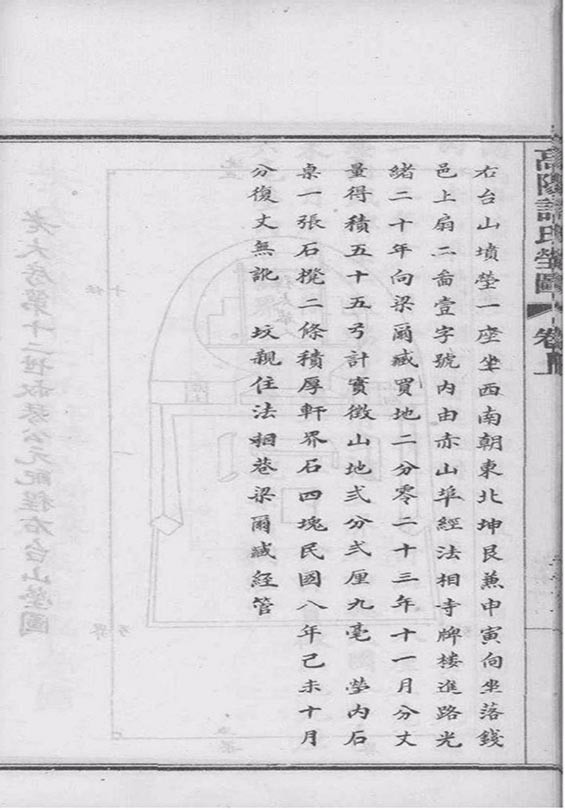 高陽許氏塋圖 卷上
右台山墳塋一座坐西南朝東北坤艮兼申寅向坐落錢
邑上扇二啚壹字號內由赤山埠經法相寺牌樓進路光
緒二十年向梁爾臧買地二分零二十三年十一月分丈
量得積五十五弓計實徵山地弍分弍厘九毫 塋內石
桌一張石櫈二條積厚軒界石四塊民國八年己未十月
分復丈無訛 坟親住法相巷梁爾臧經管